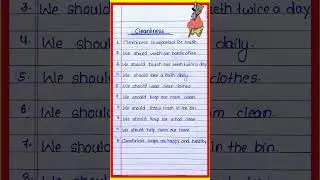 Cleanliness
1. Cleanliness is important for health.
2. We should wash our hands often.
3. We should brush our teeth twice a day.
4. We should take a bath daily.
5. We should wear clean clothes.
6. We should keep our room clean.
7. We should throw trash in the bin.
8. We should keep our school clean.
9. We should help clean our home.
10. Cleanliness keeps us happy and healthy.
3. We should
teeth twice a day
4. We should
daily.
5. We should
clothes.
6. We should
clean
7. We should
in the bin.